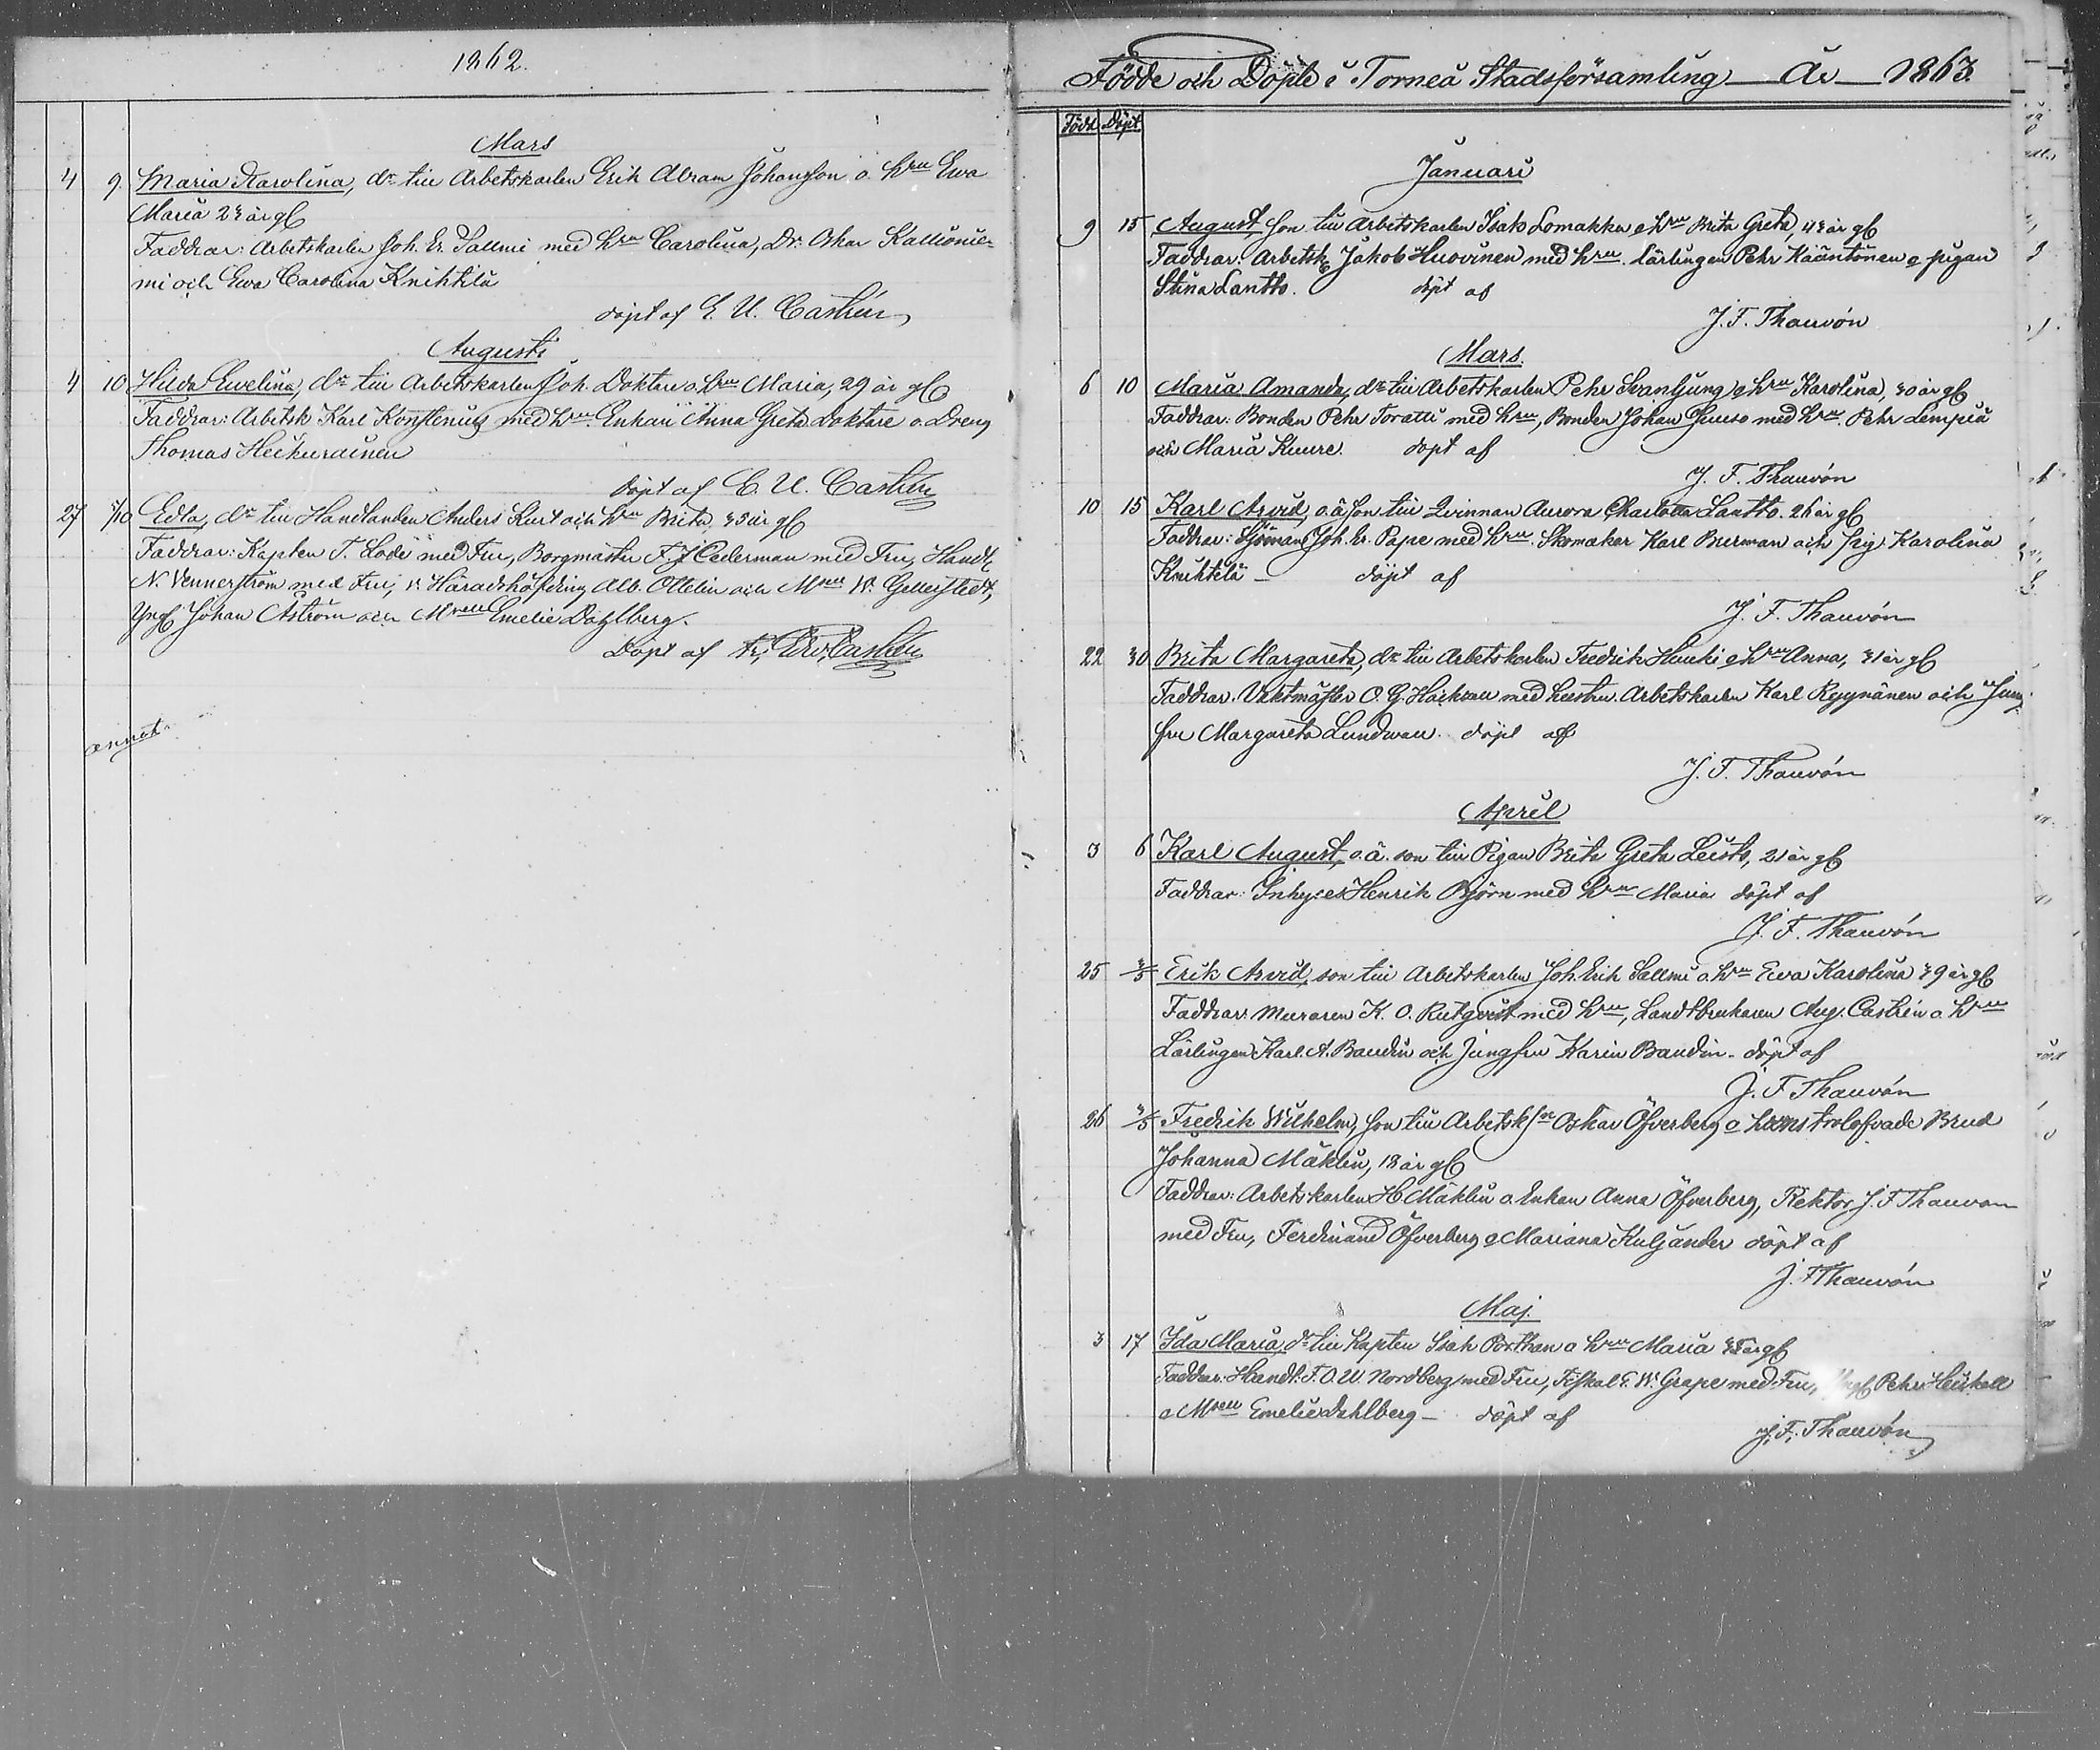 1862.
Mars
4 9. Maria Karolina, dr till Arbetskarlen Erik Abram Johansson o. hru Ewa
Maria 23 år gl
Faddrar: Arbetskarlen Joh. Er. Sallmi med hru Carolina, Dr. Oskar Kallionie-
mi och Ewa Carolina Knihtilä
döpt af E. U. Castrén
Augusti
4 10 Hilda Ewelina, dr till Arbetskarlen Joh. Doktare o. hru Maria, 29 år gl
Faddrar: Arbetsk Karl Konstenius med hru. Enkan Anna Greta Doktare o. Dreng
Thomas Heikurainen
döpt af E. U. Castrén
27 1/10 Edla, dr till Handlanden Anders Kurt och hru Brita, 35 år gl
Faddrar: Kapten T. Lode med Fru, Borgmästar F. J. Cederman med Fru, Handl
N. Vennerström med Fru, v. Häradshöfding Alb. Ottelin och Msell W.
Yngl Johan Åström och Mselle Emelie Dahlberg.
Döpt af Castrén
annat
Födde och Döpte i Torneå Stadsförsamling År 1863.
Född Döpt
Januari
9 15 August son till Arbetskarlen Isak Lomakka o hru Brita Greta, 43 år gl
Faddrar: Arbetsk Jakob Huovinen med hru. Lärlingen Pehr Kääntönen o pigan
Stina Lantto. döpt af
J. F. Thauvón
Mars.
6 10 Maria Amanda, dr till Arbetskarlen Pehr Svanljung o hru Karolina, 30 år gl
Faddrar: Bonden Pehr Toratti med hru, Bonden Johan Juuso med hru. Pehr Lempiä
och Maria Kuure. döpt af
J. F. Thauvón
10 15 Karl Arvid, o.ä son till Qvinnan Aurora Charlotta Lantto. 26 år gl
Faddrar: Sjöman Joh. Er. Pape med hru. Skomakar Karl Burman och pig Karolina
Knihtilä – döpt af
J. F. Thauvón
22 30 Brita Margareta, dr till Arbetskarlen Fredrik Hauki o hru Anna, 31 år gl
Faddrar. Vaktmäster O. G. Häckman med hustru. Arbetskarlen Karl Ryynänen och Jung-
fru Margareta Lundman. döpt af
J. F. Thauvón
April
3 6 Karl August, o.ä. son till Pigan Brita Greta Leisto, 21 år gl
Faddrar: Inhyses Henrik Björn med hru Maria döpt af
J. F. Thauvón
25 3/5 Erik Arvid, son till Arbetskarlen Joh. Erik Sallmi o. hru Ewa Karolina 39 år gl
Faddrar: Muraren K. O. Rutqvist med hru, Landtbrukaren Aug. Castrén o hru
Lärlingen Karl A. Baudin och Jungfru Karin Baudin. döpt af
J. F Thauvón
26 3/5 Fredrik Wilhelm, son till Arbetsk Oskar Öfverberg o hans trolofvade Brud
Johanna Mäklin, 18 år gl
Faddrar: Arbetskarlen H Mäklin o Enkan Anna Öfverberg, Rektor J. F Thauvon
med Fru, Ferdinand Öfverberg o Mariana Kuljander döpt af
J. F Thauvón
Maj.
3 17 Ida Maria, dr till Kapten Isak Porthan o hru Maria år gl
Faddrar. Handl. F. O. W. Nordberg med Fru, Fiskal F. W. Grape med Fru, Yngl Pehr Heiskell
o Msell Emelie Dahlberg – döpt af
J. F. Thauvón